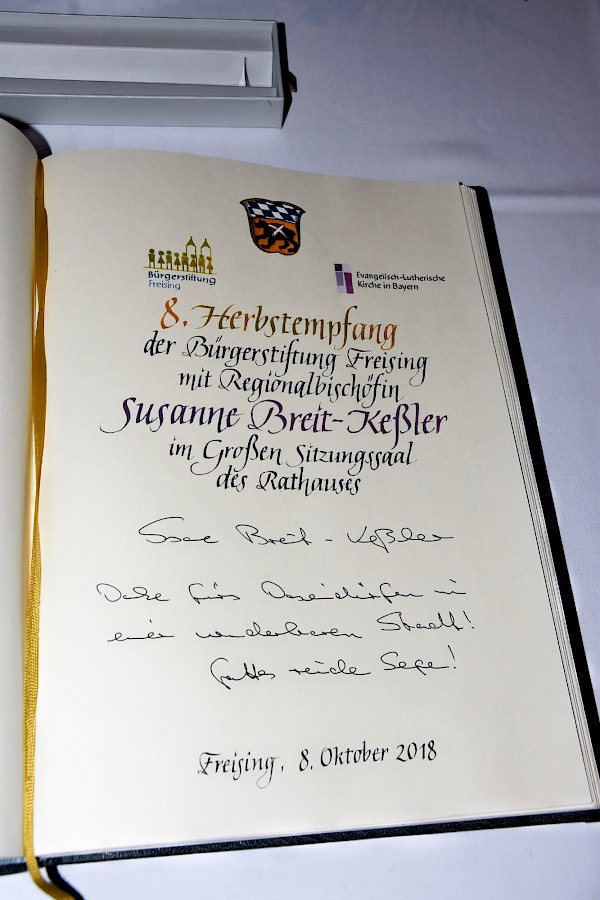 Bürgerstiftung
Freising
Evangelisch-Lutherische
Kirche in Bayern
8. Herbstempfang
der Bürgerstiftung Freising
mit Regionalbischöfin
Susanne Breit-Keßler
im Großen Sitzungssaal
des Rathauses
Susanne Breit-Keßler
Danke fürs Daseindürfen in
einer wunderbaren Stadt!
Gottes reiche Segen!
Freising, 8. Oktober 2018